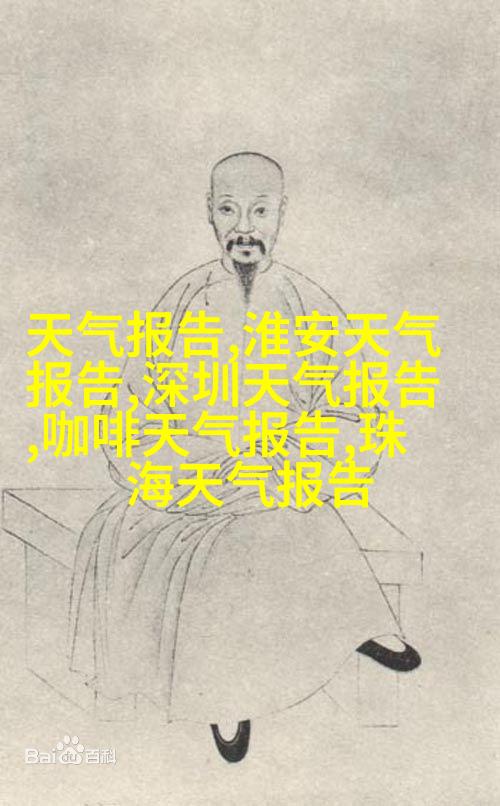 天气报告,淮安天气
报告,深圳天气报告
,咖啡天气报告,珠
海天气报告
Bai du 百科